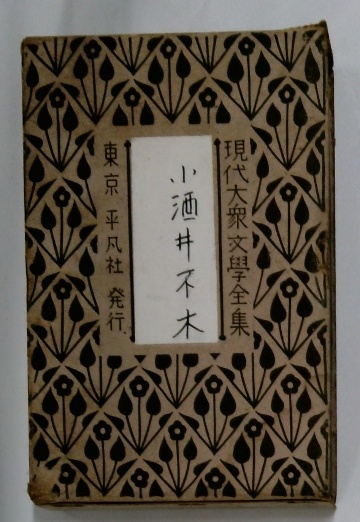 現代大衆文學全集
小酒井不木
東京 平凡社 発行